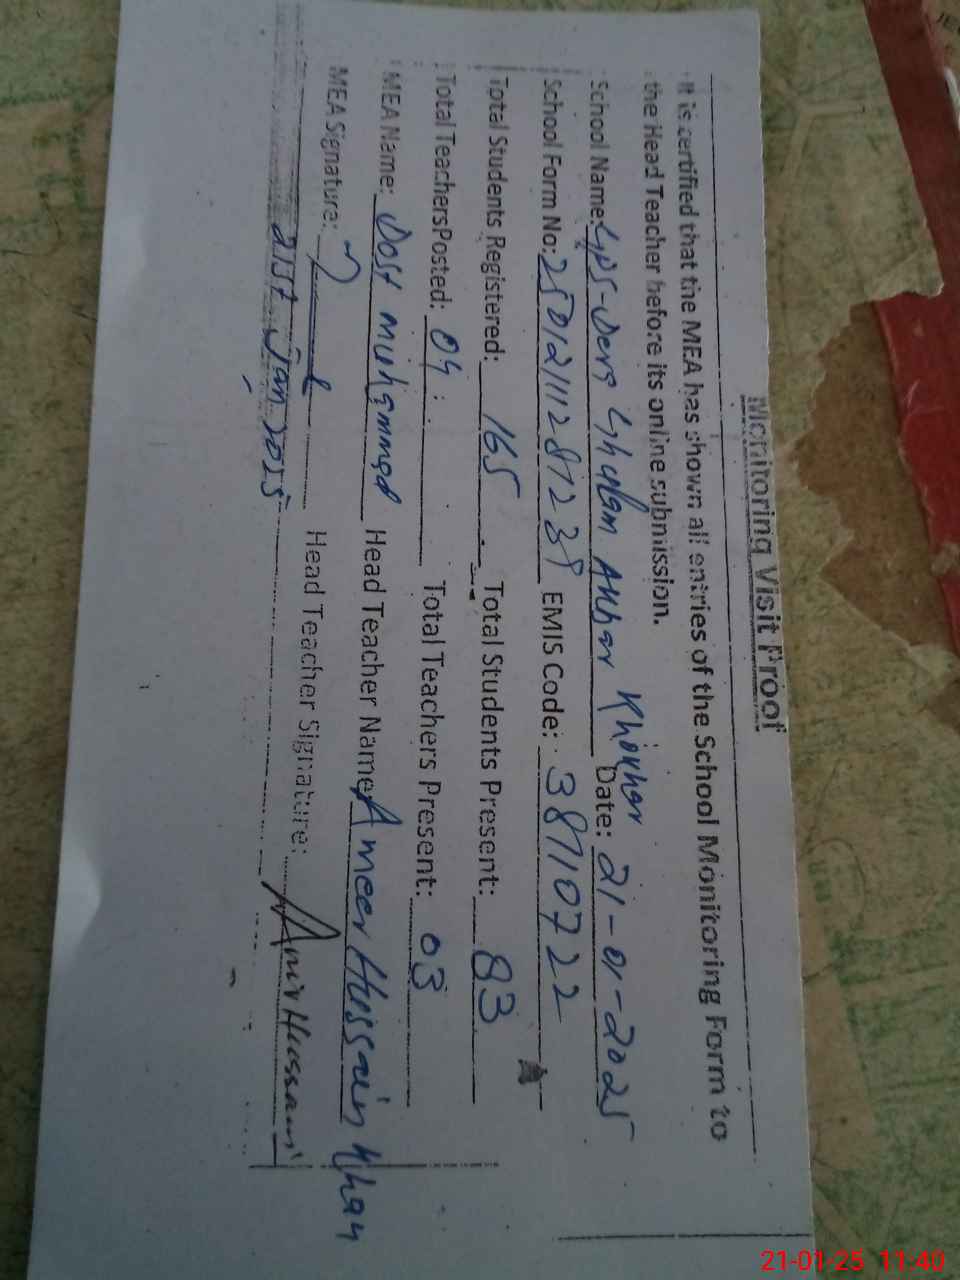 Monitoring Visit Proof
It is certified that the MEA has shown all entries of the School Monitoring Form to
the Head Teacher before its online submission.
School Name: GPS-Dera Ghulam Akbar Khokhar Date: 21-01-2025
School Form No: EMIS Code: 38710722
Total Students Registered: 165 Total Students Present: 83
Total TeachersPosted: 04 Total Teachers Present: 03
MEA Name: Dost Muhammad Head Teacher Name: Ameer Hussain Khan
MEA Signature: Head Teacher Signature: Amir Hussain
21st Jan 2025
21-01-25 11:40